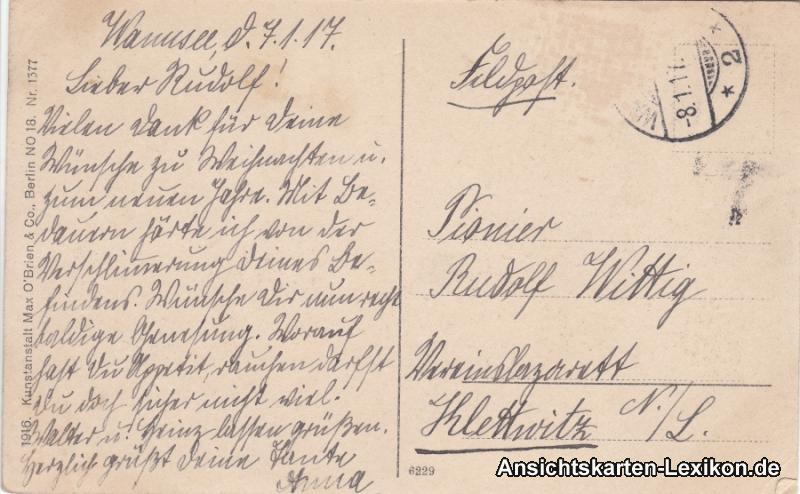 Wannsee, d. 7.1.17.
Lieber Rudolf!
Vielen Dank für Deine
Wünsche zu Weihnachten u.
zum neuen Jahre. Mit Be-
dauern hörte ich von der
Verschlimmerung Deines Be-
findens. Wünsche Dir nun recht
baldige Genesung. Worauf
hast Du Appetit, rauchen darfst
Du doch sicher nicht viel.
Walter u. Heinz lassen grüßen.
Herzlich grüßt Deine Tante
Anna
Feldpost.
-8.1.17.
* 2 *
Pionier
Rudolf Wittig
Vereinslazarett
Klettwitz N./L.
1916. Kunstanstalt Max O'Brien & Co., Berlin NO 18. Nr. 1377
6229
Ansichtskarten-Lexikon.de